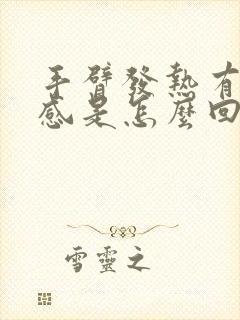 手臂發熱有
感是怎麼回
雪靈之